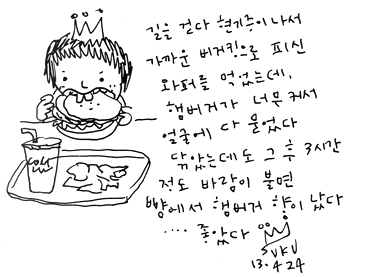 길을 걷다 현기증이 나서
가까운 버거킹으로 피신
와퍼를 먹었는데,
햄버거가 너무 커서
얼굴에 다 묻었다
닦았는데도 그 후 3시간
정도 바람이 불면
뺨에서 햄버거 향이 났다
.... 좋았다
SUKU
13.4.24